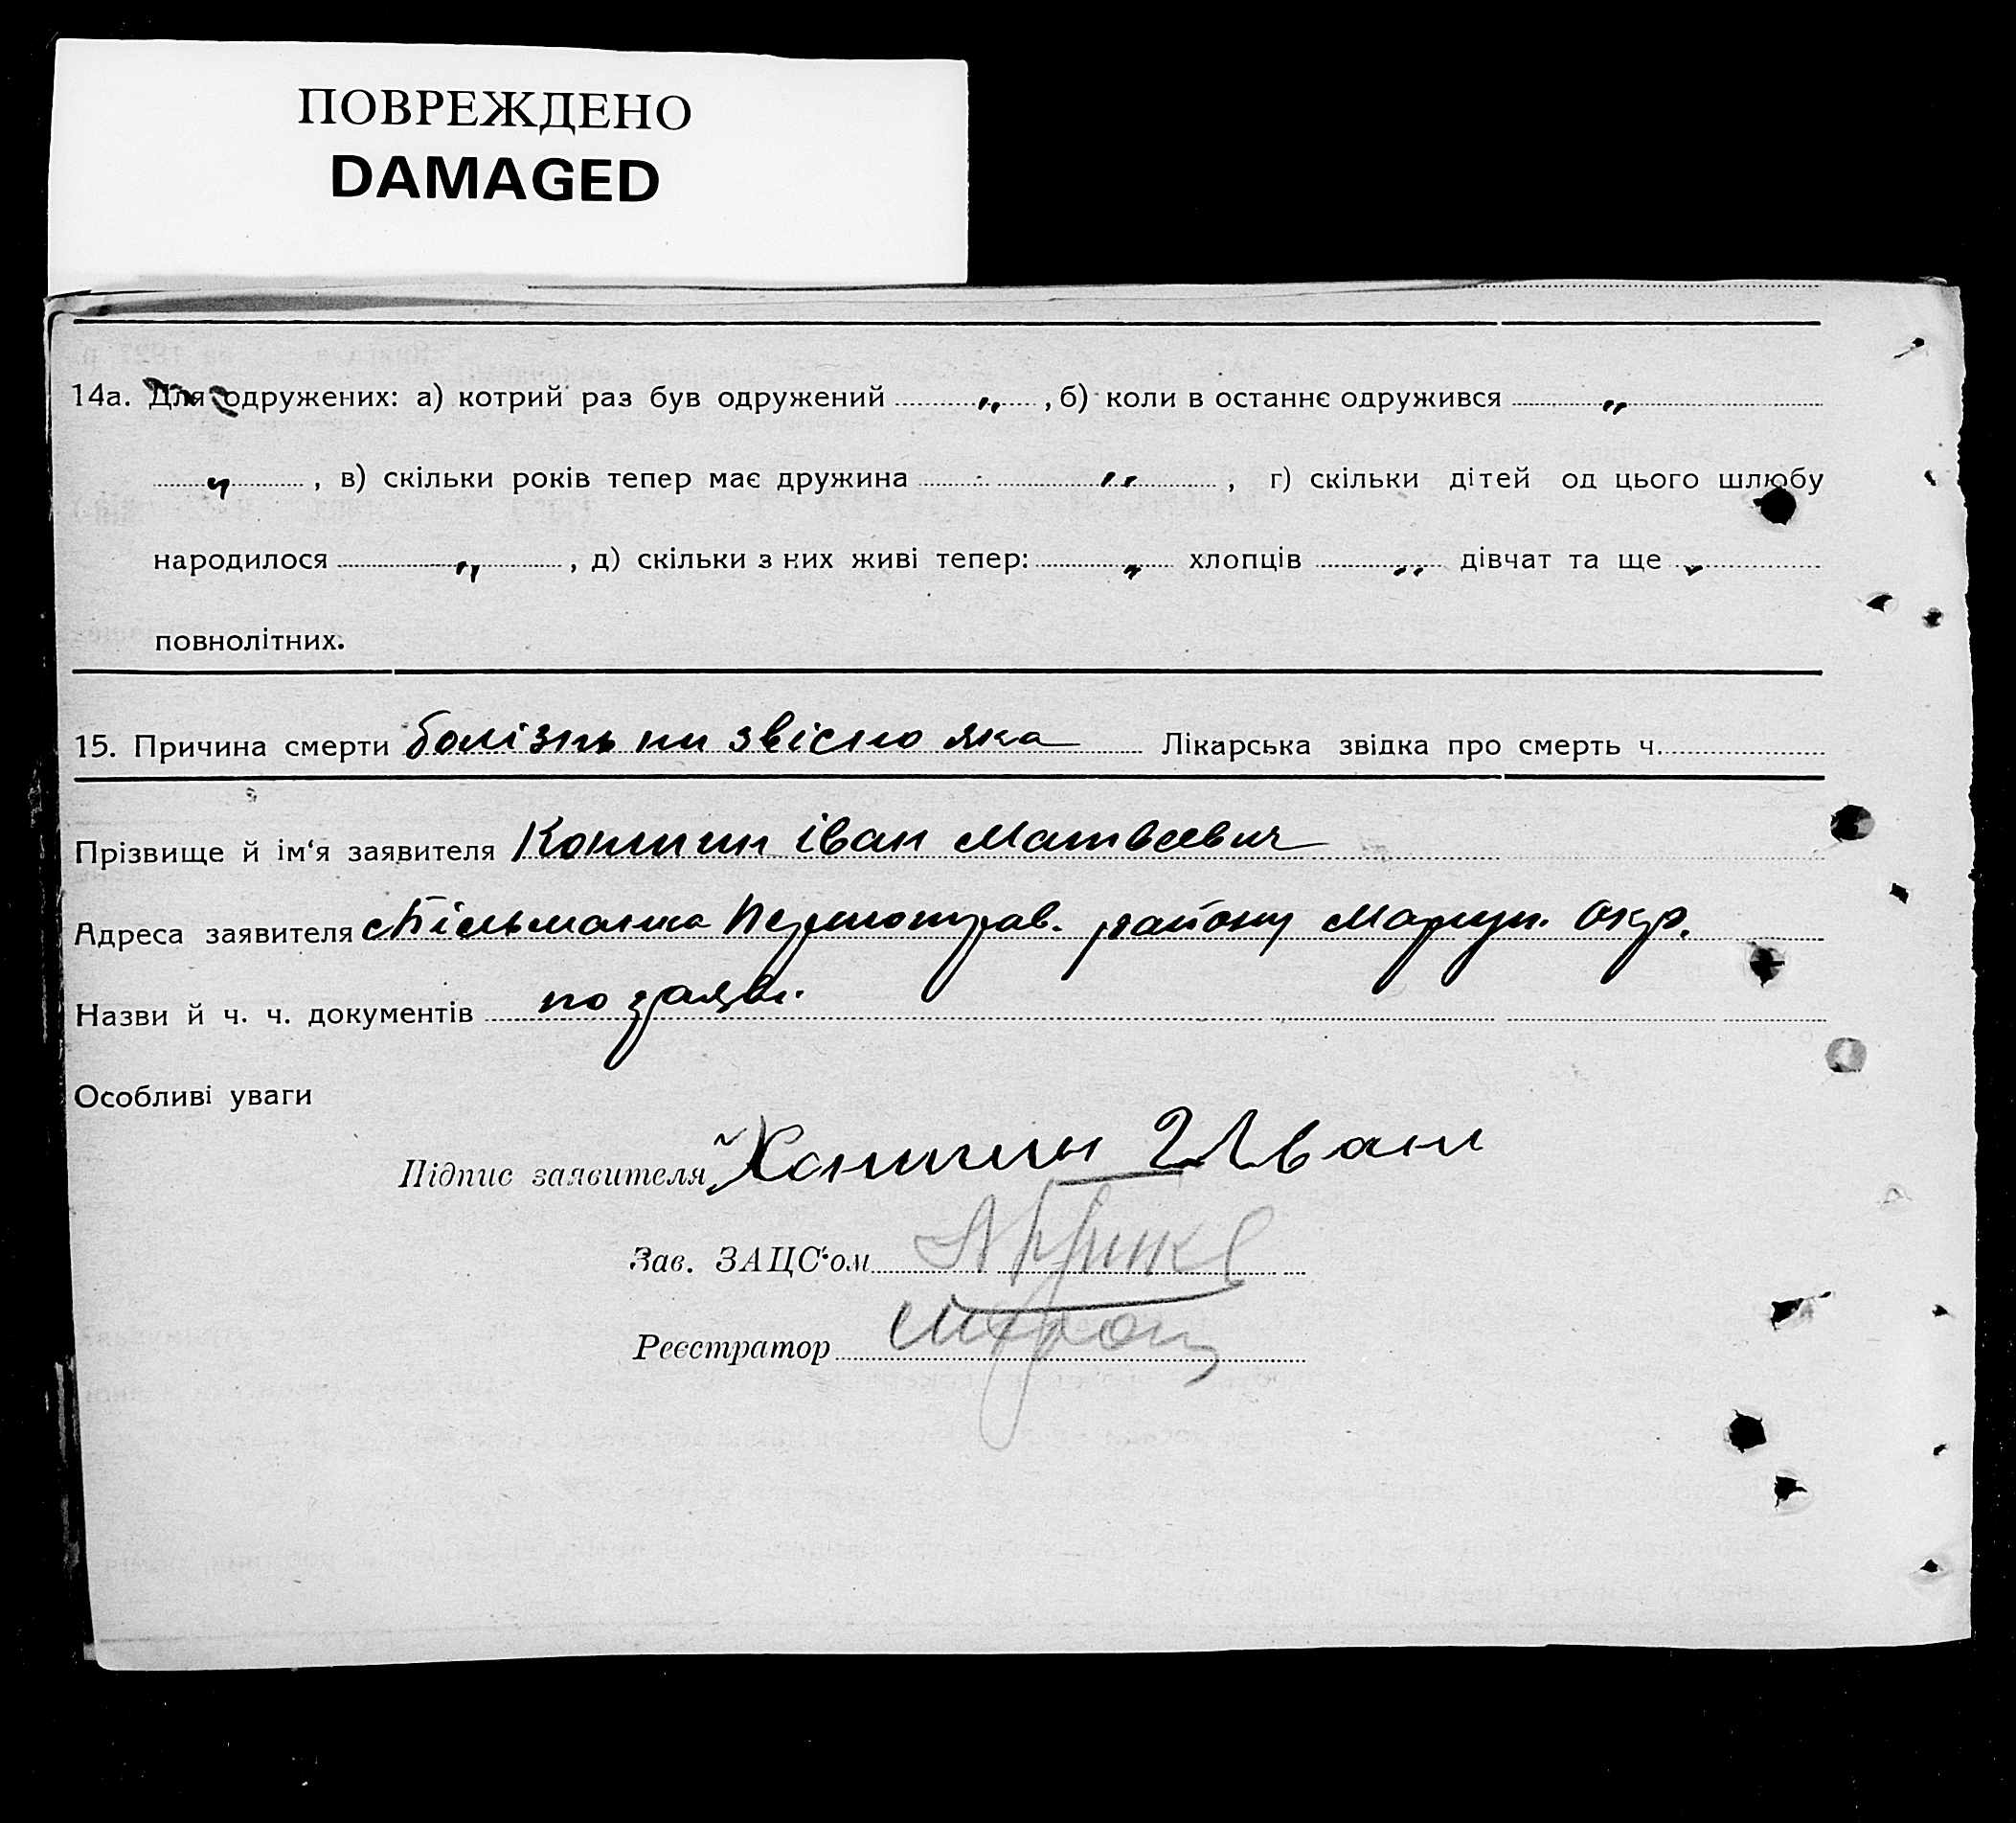 ПОВРЕЖДЕНО
DAMAGED
14а. Для одружених: а) котрий раз був одружений „ , б) коли в останнє одружився „
„ , в) скільки років тепер має дружина „ , г) скільки дітей од цього шлюбу
народилося „ , д) скільки з них живі тепер: „ хлопців „ дівчат та ще „
повнолітних.
15. Причина смерти болізть ни звісно яка Лікарська звідка про смерть ч.
Прізвище й ім‘я заявителя Іван Матвеевич
Адреса заявителя району Маріуп. Окр.
Назви й ч. ч. документів по заяві.
Особливі уваги
Підпис заявителя Иван
Зав. ЗАЦС‘ом
Реєстратор